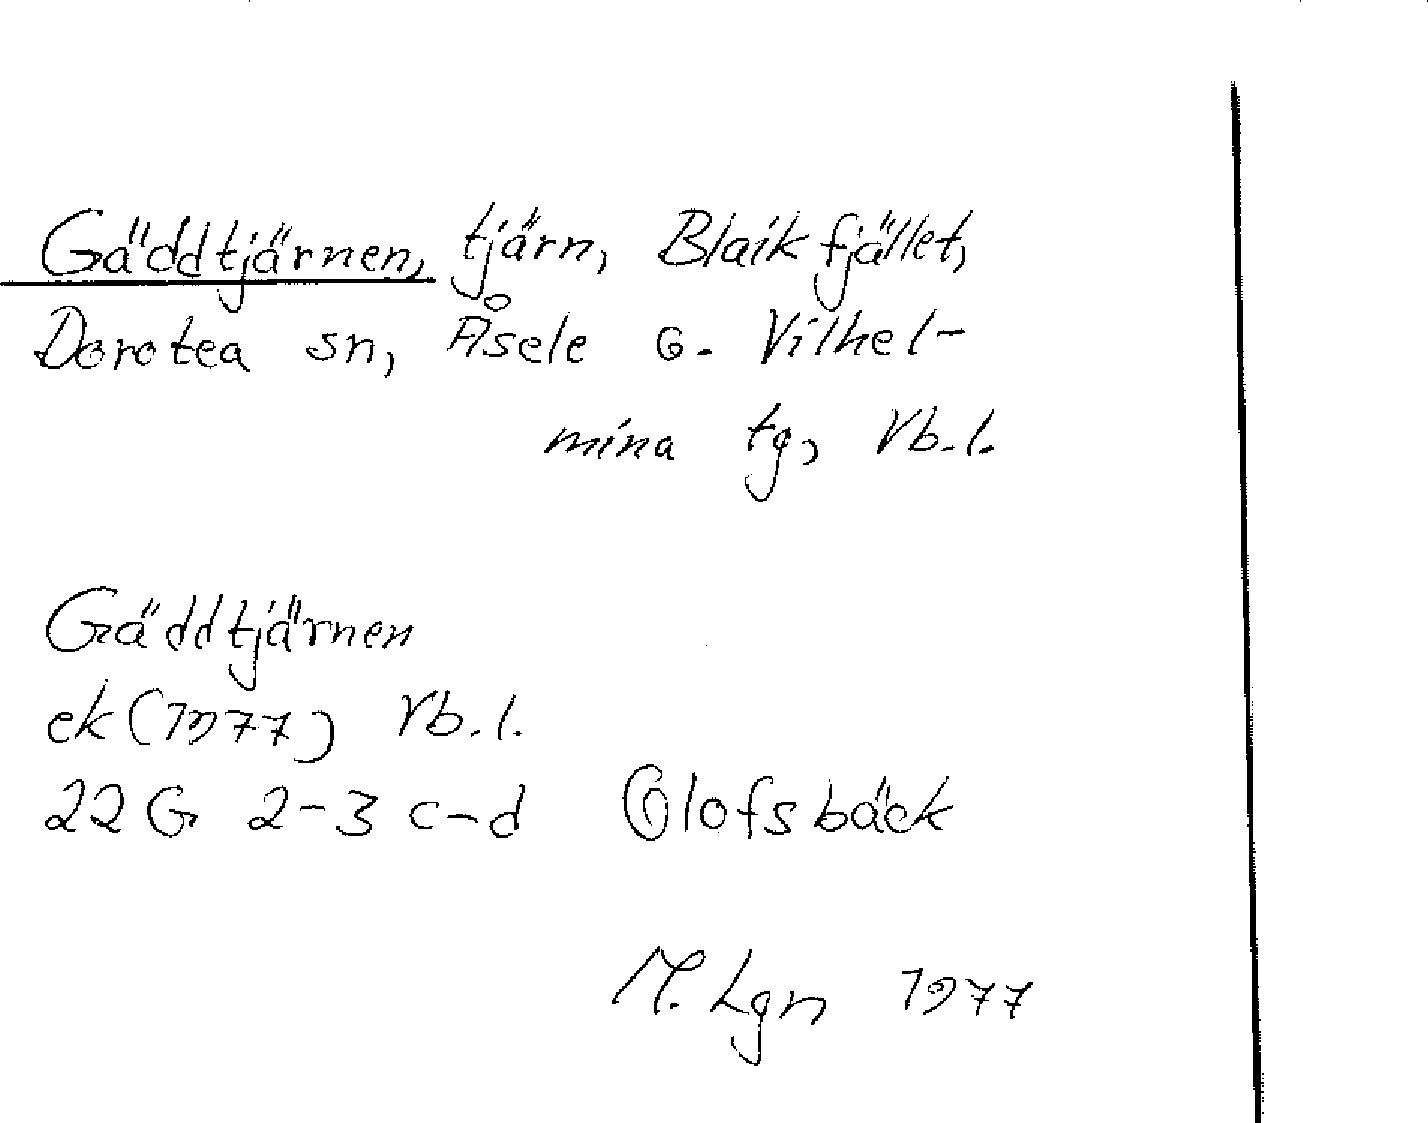 Gäddtjärnen, tjärn, Blaikfjället,
Dorotea sn, Åsele o. Vilhel-
mina tg, Vb.l.
Gäddtjärnen
ek(1977) Vb.l.
22G 2-3 c-d Olofsbäck
M. Lgn 1977